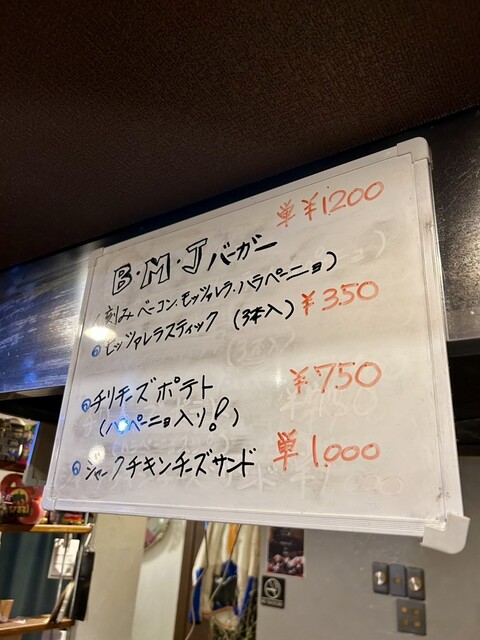 B・M・Jバーガー 単¥1200
(刻みベーコン、モッツァレラ・ハラペーニョ)
モッツァレラスティック (3本入) ¥350
チリチーズポテト ¥750
(ハラペーニョ入り!)
ジャークチキンチーズサンド 単1.000